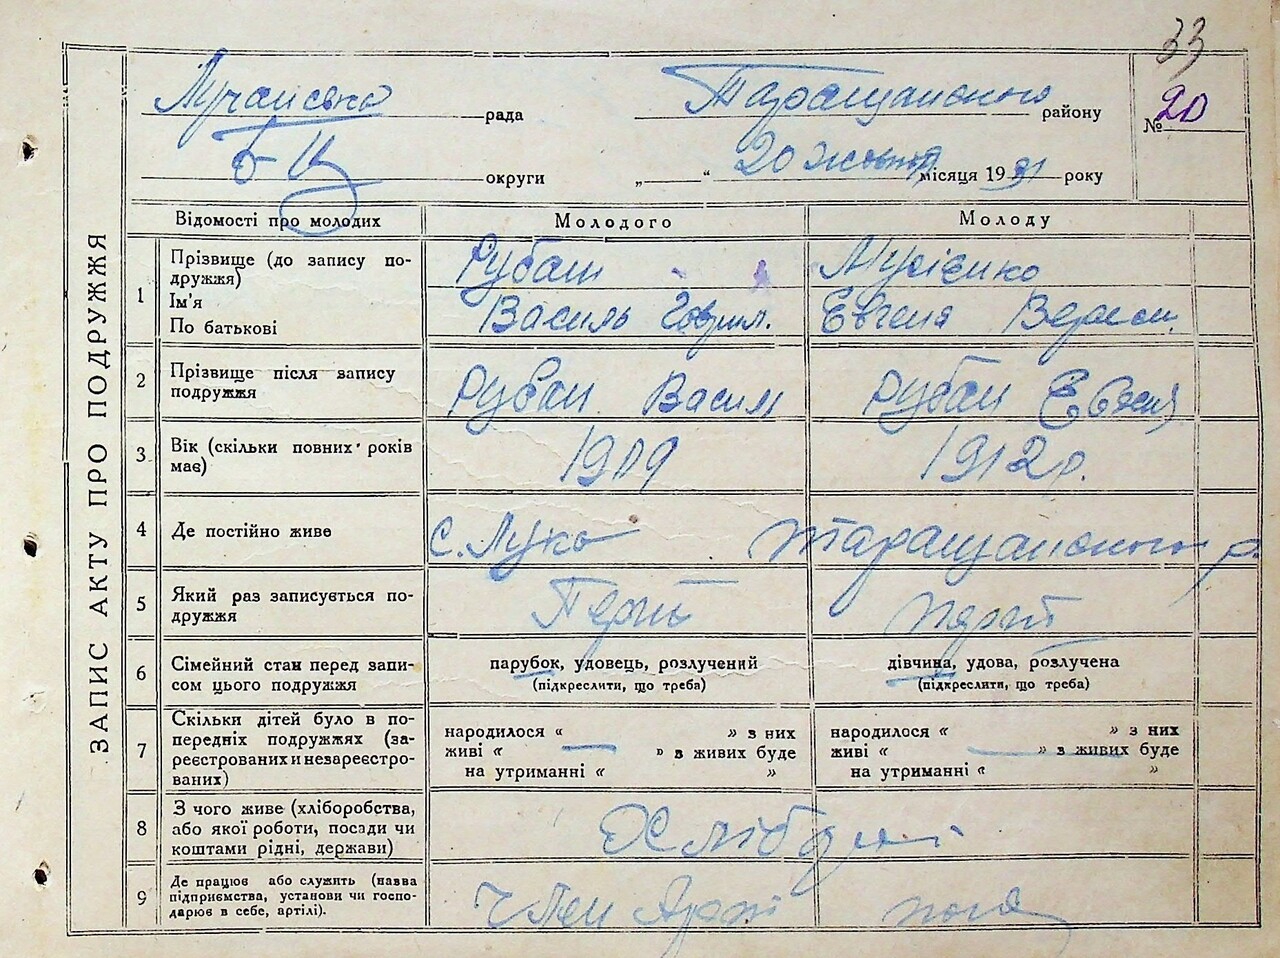 33
Лучанська рада Таращанського району № 20
б-Ц округи „ “ 20 жовтня місяця 1931 року
ЗАПИС АКТУ ПРО ПОДРУЖЖЯ
Відомості про молодих Молодого Молоду
1 Прізвище (до запису по-
дружжя) Рубан Мусієнко
Ім'я
По батькові Василь Гаврил. Евгена
2 Прізвище після запису
подружжя Рубан Васил Рубан Евгенія
3 Вік (скільки повних років
має) 1909 1912 р.
4 Де постійно живе с. Лука Таращанського р.
5 Який раз записується по-
дружжя
6 Сімейний стан перед запи-
сом цього подружжя
парубок, удовець, розлучений
(підкреслити, що треба)
дівчина, удова, розлучена
(підкреслити, що треба)
7 Скільки дітей було в по-
передніх подружжях (за-
реєстрованих и незареєстро-
ваних)
народилося “ » з них
живі “ — » з живих буде
на утриманні “ »
народилося “ » з них
живі “ — » з живих буде
на утриманні “ »
8 З чого живе (хліборобства,
або якої роботи, посади чи
коштами рідні, держави)
9 Де працює або служить (назва
підприємства, установи чи госпо-
дарює в себе, артілі). Член